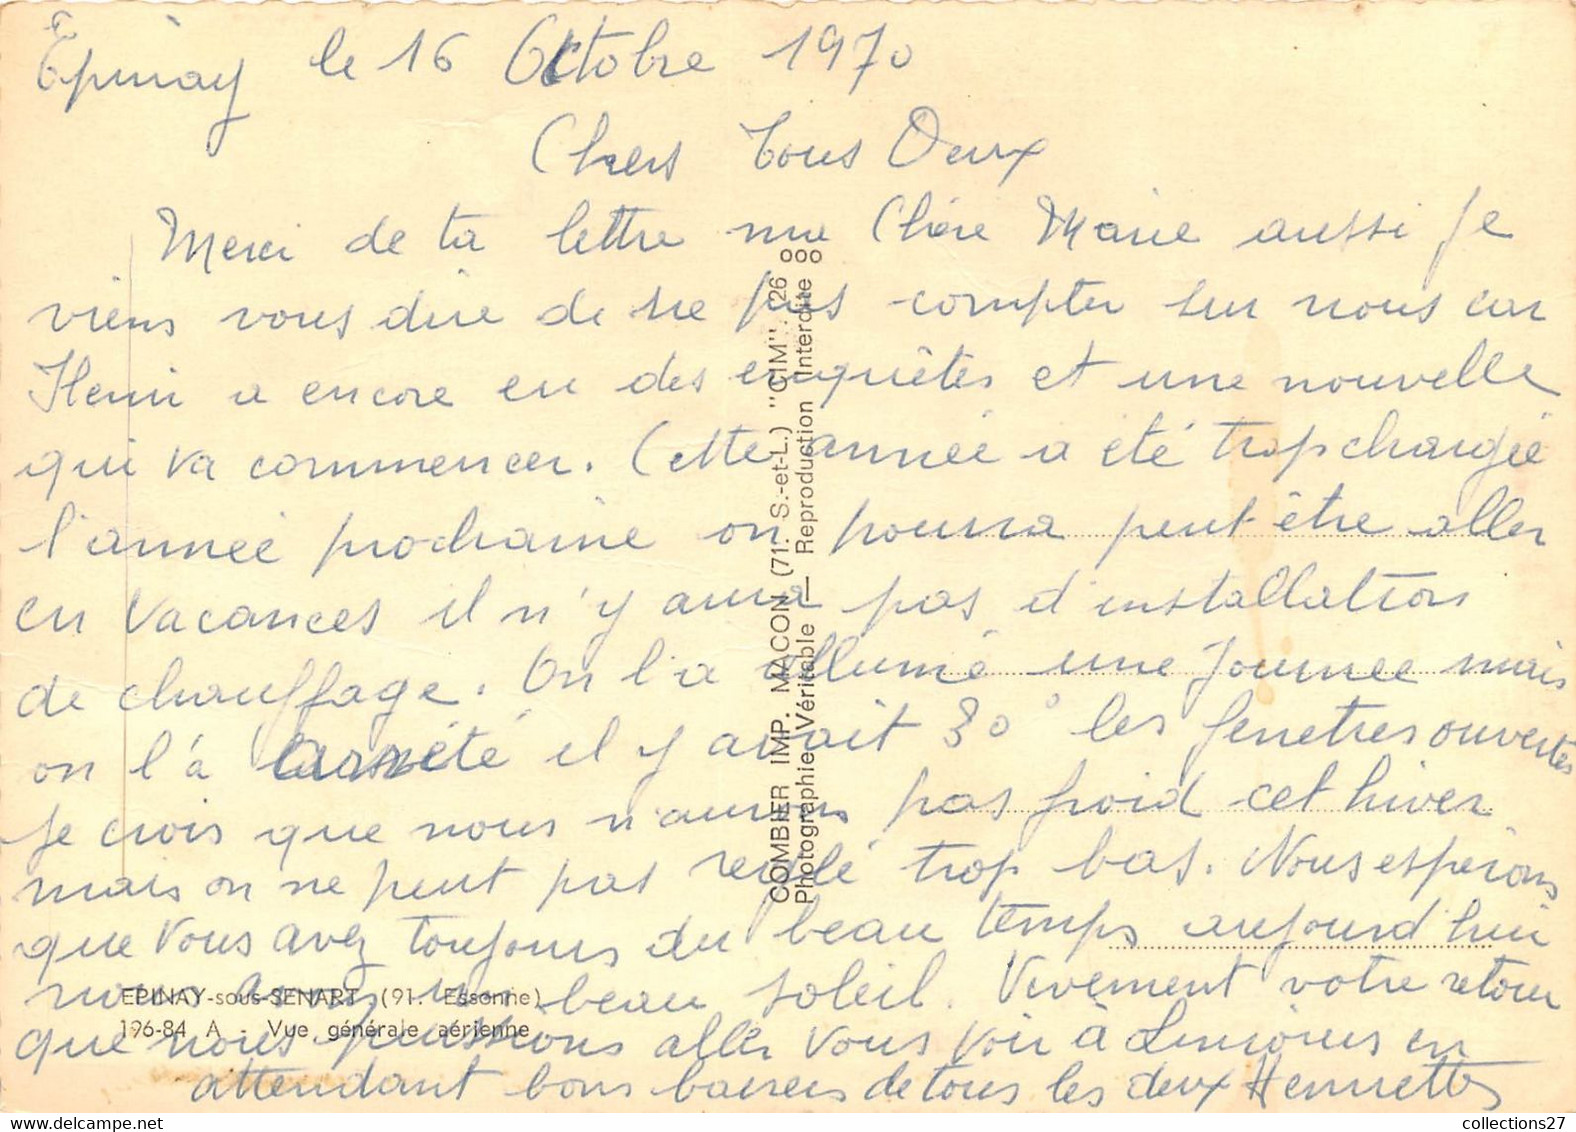 Epinay le 16 Octobre 1970
Chers Tous Deux
Merci de ta lettre ma Chère Marie aussi Je
viens vous dire de ne pas compter sur nous car
Henri a encore eu des enquêtes et une nouvelle
qui va commencer. Cette année a été trop chargée
l'année prochaine on pourra peut être aller
en Vacances il n'y aura pas d'installation
de chauffage. On l'a allumé une Journee mais
on l'á arrêté il y avait 30° les fenetres ouvertes
Je crois que nous n'aurons pas froid cet hiver
mais on ne peut pas trop bas. Nous esperons
que Vous avez toujours du beau temps aujourd'hui
nous avons un beau soleil. Vivement votre retour
que nous puissions aller Vous Voir à en
attendant bons baisers de tous les deux Henriette
EPINAY-sous-SENART (91. Essonne)
196-84 A - Vue générale aérienne
COMBIER IMP. MACON (71. S.-et-L.) "CIM"
Photographie Véritable — Reproduction Interdite
collections27